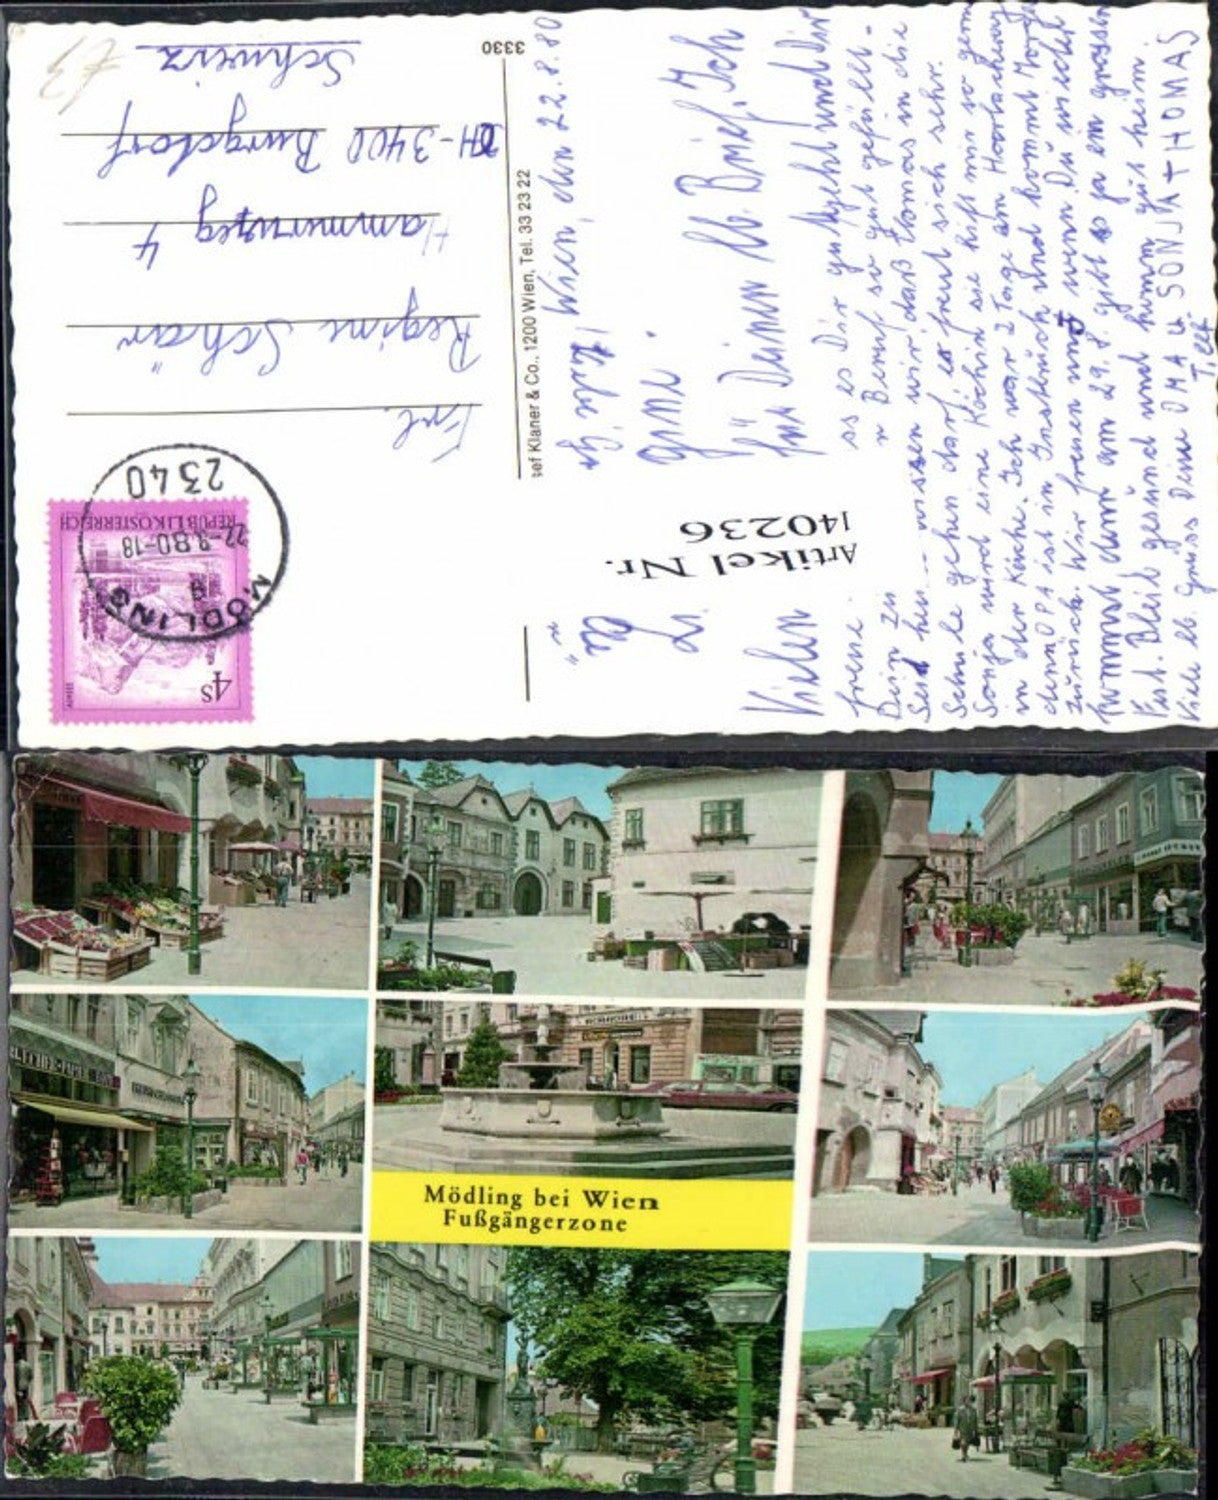 Wien, den 22.8.80
Vielen lb. Brief. Ich
freue
ss es Dir gut geht und Dir
Dein zu
n Beruf so gut gefällt.
wissen wir, daß Thomas in die
Schule gehen darf, er freut sich sehr.
Sonja wird eine Köchin sie hilft mir so gern
in der Küche. Ich war 2 Tage am
denn OPA ist in Innsbruck und kommt
zurück. Wir freuen uns wenn Du wieder
kommst denn am 29.8. gibt es ja ein grosses
Bleib gesund und komm gut heim.
Viele lb. Grüsse Deine OMA u SONJA + THOMAS
für Deinen
Artikel Nr.
140236
3330
sef Klaner & Co., 1200 Wien, Tel. 33 23 22
Frl.
Regine Schär
Hammerweg 4
CH-3400 Burgdorf
Schweiz
4s
REPUBLIK ÖSTERREICH
2340
22.-8.80-18
MÖDLING
Mödling bei Wien
Fußgängerzone